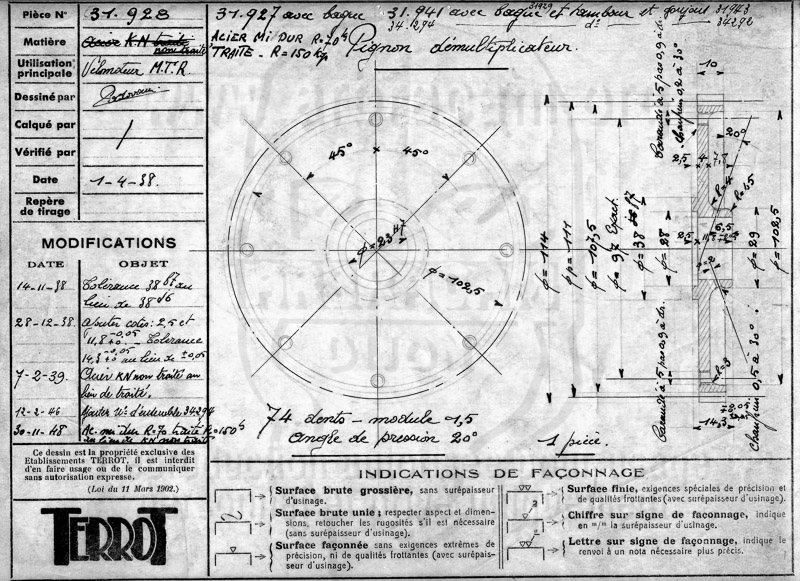 Pièce N° 31.928
31.927 avec bague 31.941 avec bague et tambour et goujons 31943
31929
34.1294 d° 34292
Matière Acier K.N traité
non traité
ACIER Mi DUR R=70 k
TRAITE - R=150 kg
Pignon démultiplicateur.
Utilisation
principale Vélomoteur M.T.R
Dessiné par
Calqué par /
Vérifié par
Date 1-4-38.
Repère
de tirage
MODIFICATIONS
DATE OBJET
14-11-38 Tolérance 38 au
lieu de 38
28-12-38. Ajouter cotes: 2,5 et
11,8 Tolérance
14,3 au lieu de ±0,05
7-2-39. Acier KN non traité au
lieu de traité.
12-2-46 Ajouter N° d'ensemble 34294
30-11-48 Ac. mi dur R=70 traité R=150 k
au lieu de KN non traité
Ce dessin est la propriété exclusive des
Etablissements TERROT, il est interdit
d'en faire usage ou de le communiquer
sans autorisation expresse.
(Loi du 11 Mars 1902.)
TERROT
45° 45°
φ=23 H7
φ=102,5
74 dents - module 1,5
angle de pression 20°
1 pièce.
φ=114
φp=111
φ=107,5
φ=97 Exact.
φ=38
φ=28
φ=29
φ=102,5
10
20°
2,5 4 7,8
R=4
R=45
2,5
6,5
φ=2
R=3
14,3
Taraudé à 5 pas 0,9 à dr.
Chanfrein 0,2 à 30°
Taraudé à 5 pas 0,9 à dr.
Chanfrein 0,5 à 30°
INDICATIONS DE FAÇONNAGE
Surface brute grossière, sans surépaisseur
d'usinage.
Surface brute unie ; respecter aspect et dimen-
sions, retoucher les rugosités s'il est nécessaire
(sans surépaisseur d'usinage).
Surface façonnée sans exigences extrêmes de
précision, ni de qualités frottantes (avec surépais-
seur d'usinage).
Surface finie, exigences spéciales de précision et
de qualités frottantes (avec surépaisseur d'usinage).
Chiffre sur signe de faconnage, indique
en =/= la surépaisseur d'usinage.
Lettre sur signe de façonnage, indique le
renvoi à un nota nécessaire plus précis.